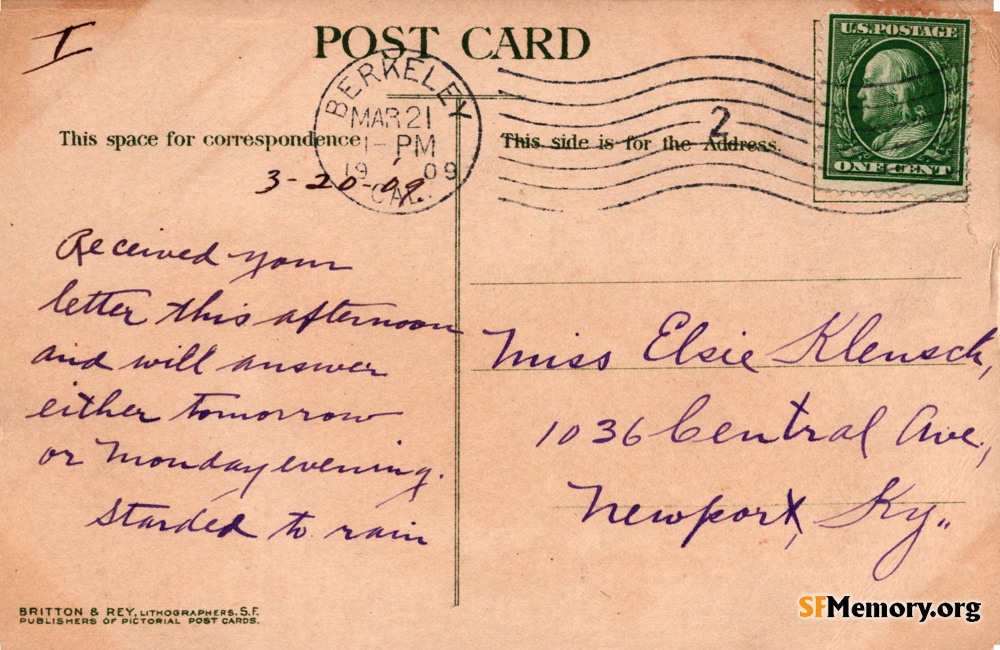 I
POST CARD
U.S. POSTAGE
ONE CENT
BERKELEY
MAR 21
1-PM
1909
CAL.
2
This space for correspondence
This side is for the Address.
3-20-09.
Received your
letter this afternoon
and will answer
either tomorrow
or Monday evening.
Starded to rain
Miss Elsie Klensch,
1036 Central Ave.,
Newport, Ky.,
BRITTON & REY, LITHOGRAPHERS, S.F.
PUBLISHERS OF PICTORIAL POST CARDS.
SFMemory.org